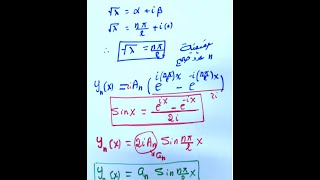 √λ = α + iβ
√λ = nπ/ℓ + i(0)
∴ √λ = nπ/ℓ
n عدد صحيح
yₙ(x) = iAₙ (e^{i(nπ/ℓ)x} - e^{-i(nπ/ℓ)x})
Sin x = (e^{ix} - e^{-ix})/2i
yₙ(x) = 2iAₙ Sin nπ/ℓ x
aₙ
yₙ(x) = aₙ Sin nπ/ℓ x